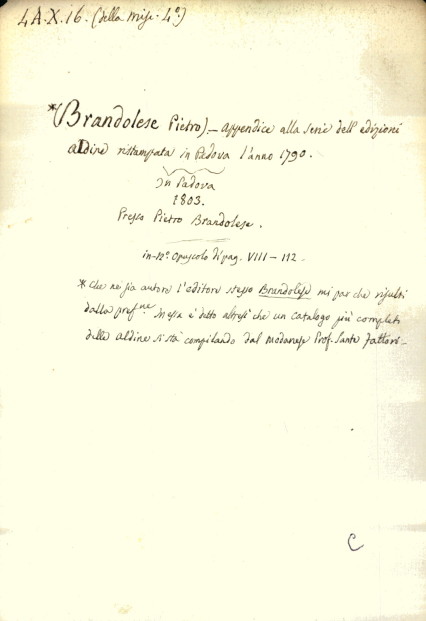 4A.X.16. (della Misc. 4º.)
*(Brandolese Pietro) — appendice alla serie dell'edizioni
alDine ristampata in Padova l'anno 1790.
In Padova
1803.
Presso Pietro Brandolese.
in-12º. Opuscolo di pag. VIII – 112.
* Che ne sia autore l'editore stesso Brandolese mi par che risulti
dalla pref.ne In essa è detto altresì che un catalogo più completo
delle aldine si sta compilando dal modanese Prof. Sante Fattori –
C